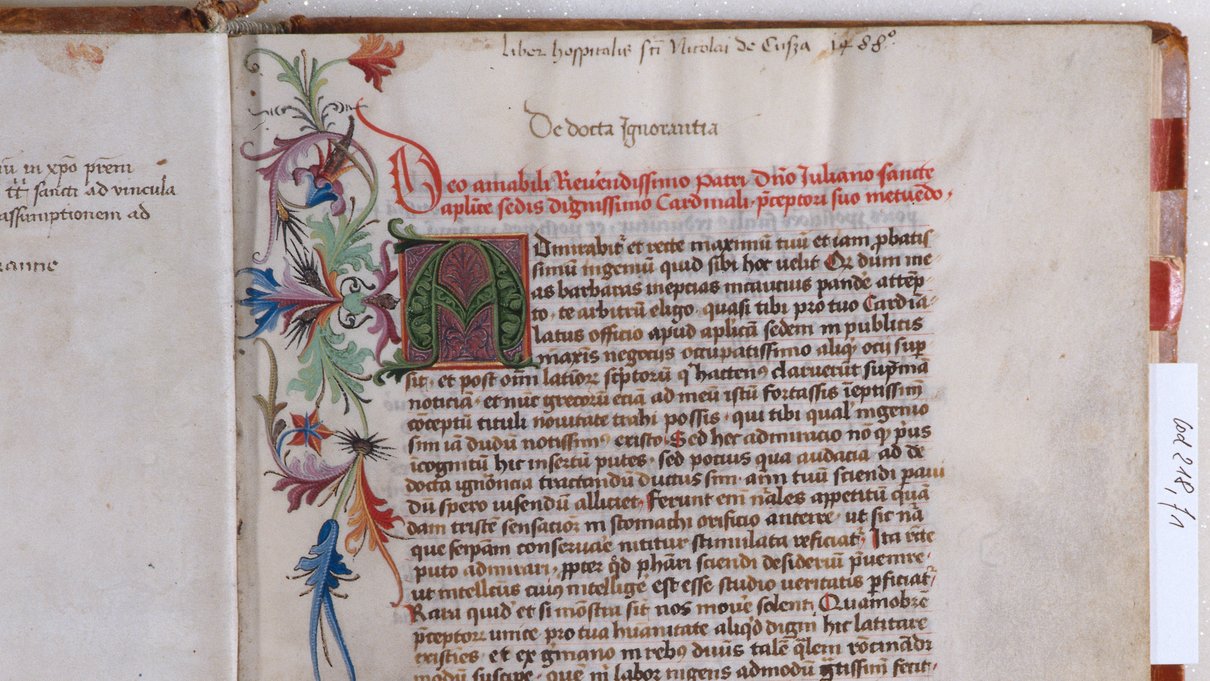 nū in xpō prem
tt sancti ad vincula
assumptionem ad
rantie
Liber hospitalis sti Nicolai de Cusza 1488°
De docta Ignorantia
Deo amabili Reverendissimo Patri dno Iuliano sancte
aplice sedis dignissimo Cardinali preceptori suo metuedo
Admirabitr et recte maximū tuū et iam pbatis
simū ingeniū quid sibi hoc velit Qz dum me
as barbaras ineptias incautius pande attēp
to te arbitrū eligo quasi tibi pro tuo Cardīa
latus officio apud aplicā sedem in publicis
maxīs negociis occupatissimo aliqd ocii supr
sit et post oīm latinoꝝ scptoꝝ qͥ hactenꝰ claruerūt supmā
noticiā et nūc grecorū etiā ad meū istū fortassis īeptissimū
cōceptū tituli novitate trahi possis qui tibi quali ingenio
sim iā dudū notissimꝰ existo Sed hec admiracio nō qꝫ pͥus
īcognitū hic insertū putes sed pocius qua audacia ad de
docta ignorācia tractandū ductus sim aīm tuū sciendi
dū spero visendū alliciet Ferunt eni nāles appetitū quā
dam triste sensacioē in stomachi orificio anteire ut sic nā
que seipam conservare nititur stimulata reficiatr Ita recte
puto admirari ppter qd phāri sciendi desideriū pvenire
ut intellctus cuiꝰ intellige est esse studio veritatis pficiatr
Rara quid et si mōstra sit nos move solent Quamobrē
pceptoꝝ unice pro tua huānitate aliqd digni hic latitare
existies et ex gmano in rebꝰ divīs talē qlem rōcinādi
modū suscipe quē m labor ingens admodū gtissimū fecit
Cod 218, f1